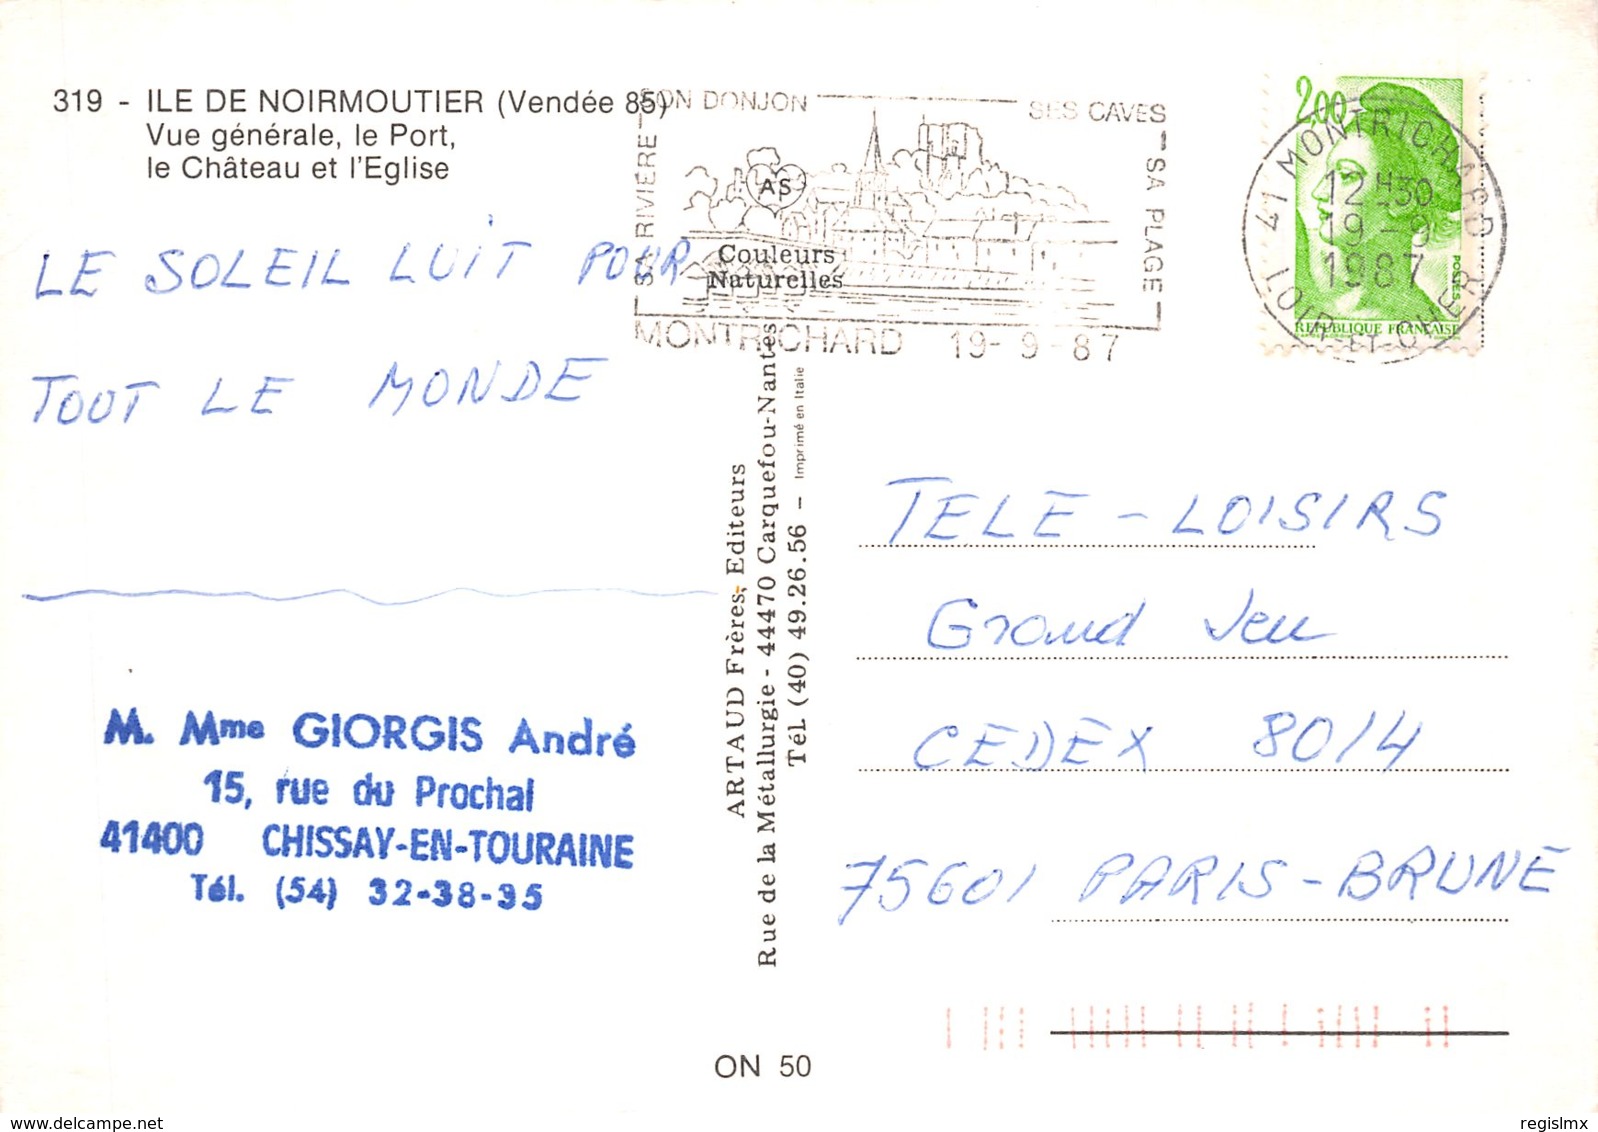 319 - ILE DE NOIRMOUTIER (Vendée 85)
Vue générale, le Port,
le Château et l'Eglise
LE SOLEIL LUIT POUR
TOUT LE MONDE
M. Mme GIORGIS André
15, rue du Prochal
41400 CHISSAY-EN-TOURAINE
Tél. (54) 32-38-95
SA RIVIÈRE
SON DONJON
SES CAVES
SA PLAGE
AS
Couleurs
Naturelles
MONTRICHARD 19-9-87
ARTAUD Frères, Editeurs
Rue de la Métallurgie - 44470 Carquefou-Nantes
Tél. (40) 49.26.56 - Imprimé en Italie
2,00
POSTES
REPUBLIQUE FRANÇAISE
41 MONTRICHARD
12H30
19-9
1987
LOIR ET CHER
TELE-LOISIRS
Grand Jeu
CEDEX 8014
75601 PARIS-BRUNE
ON 50
delcampe.net
regislmx